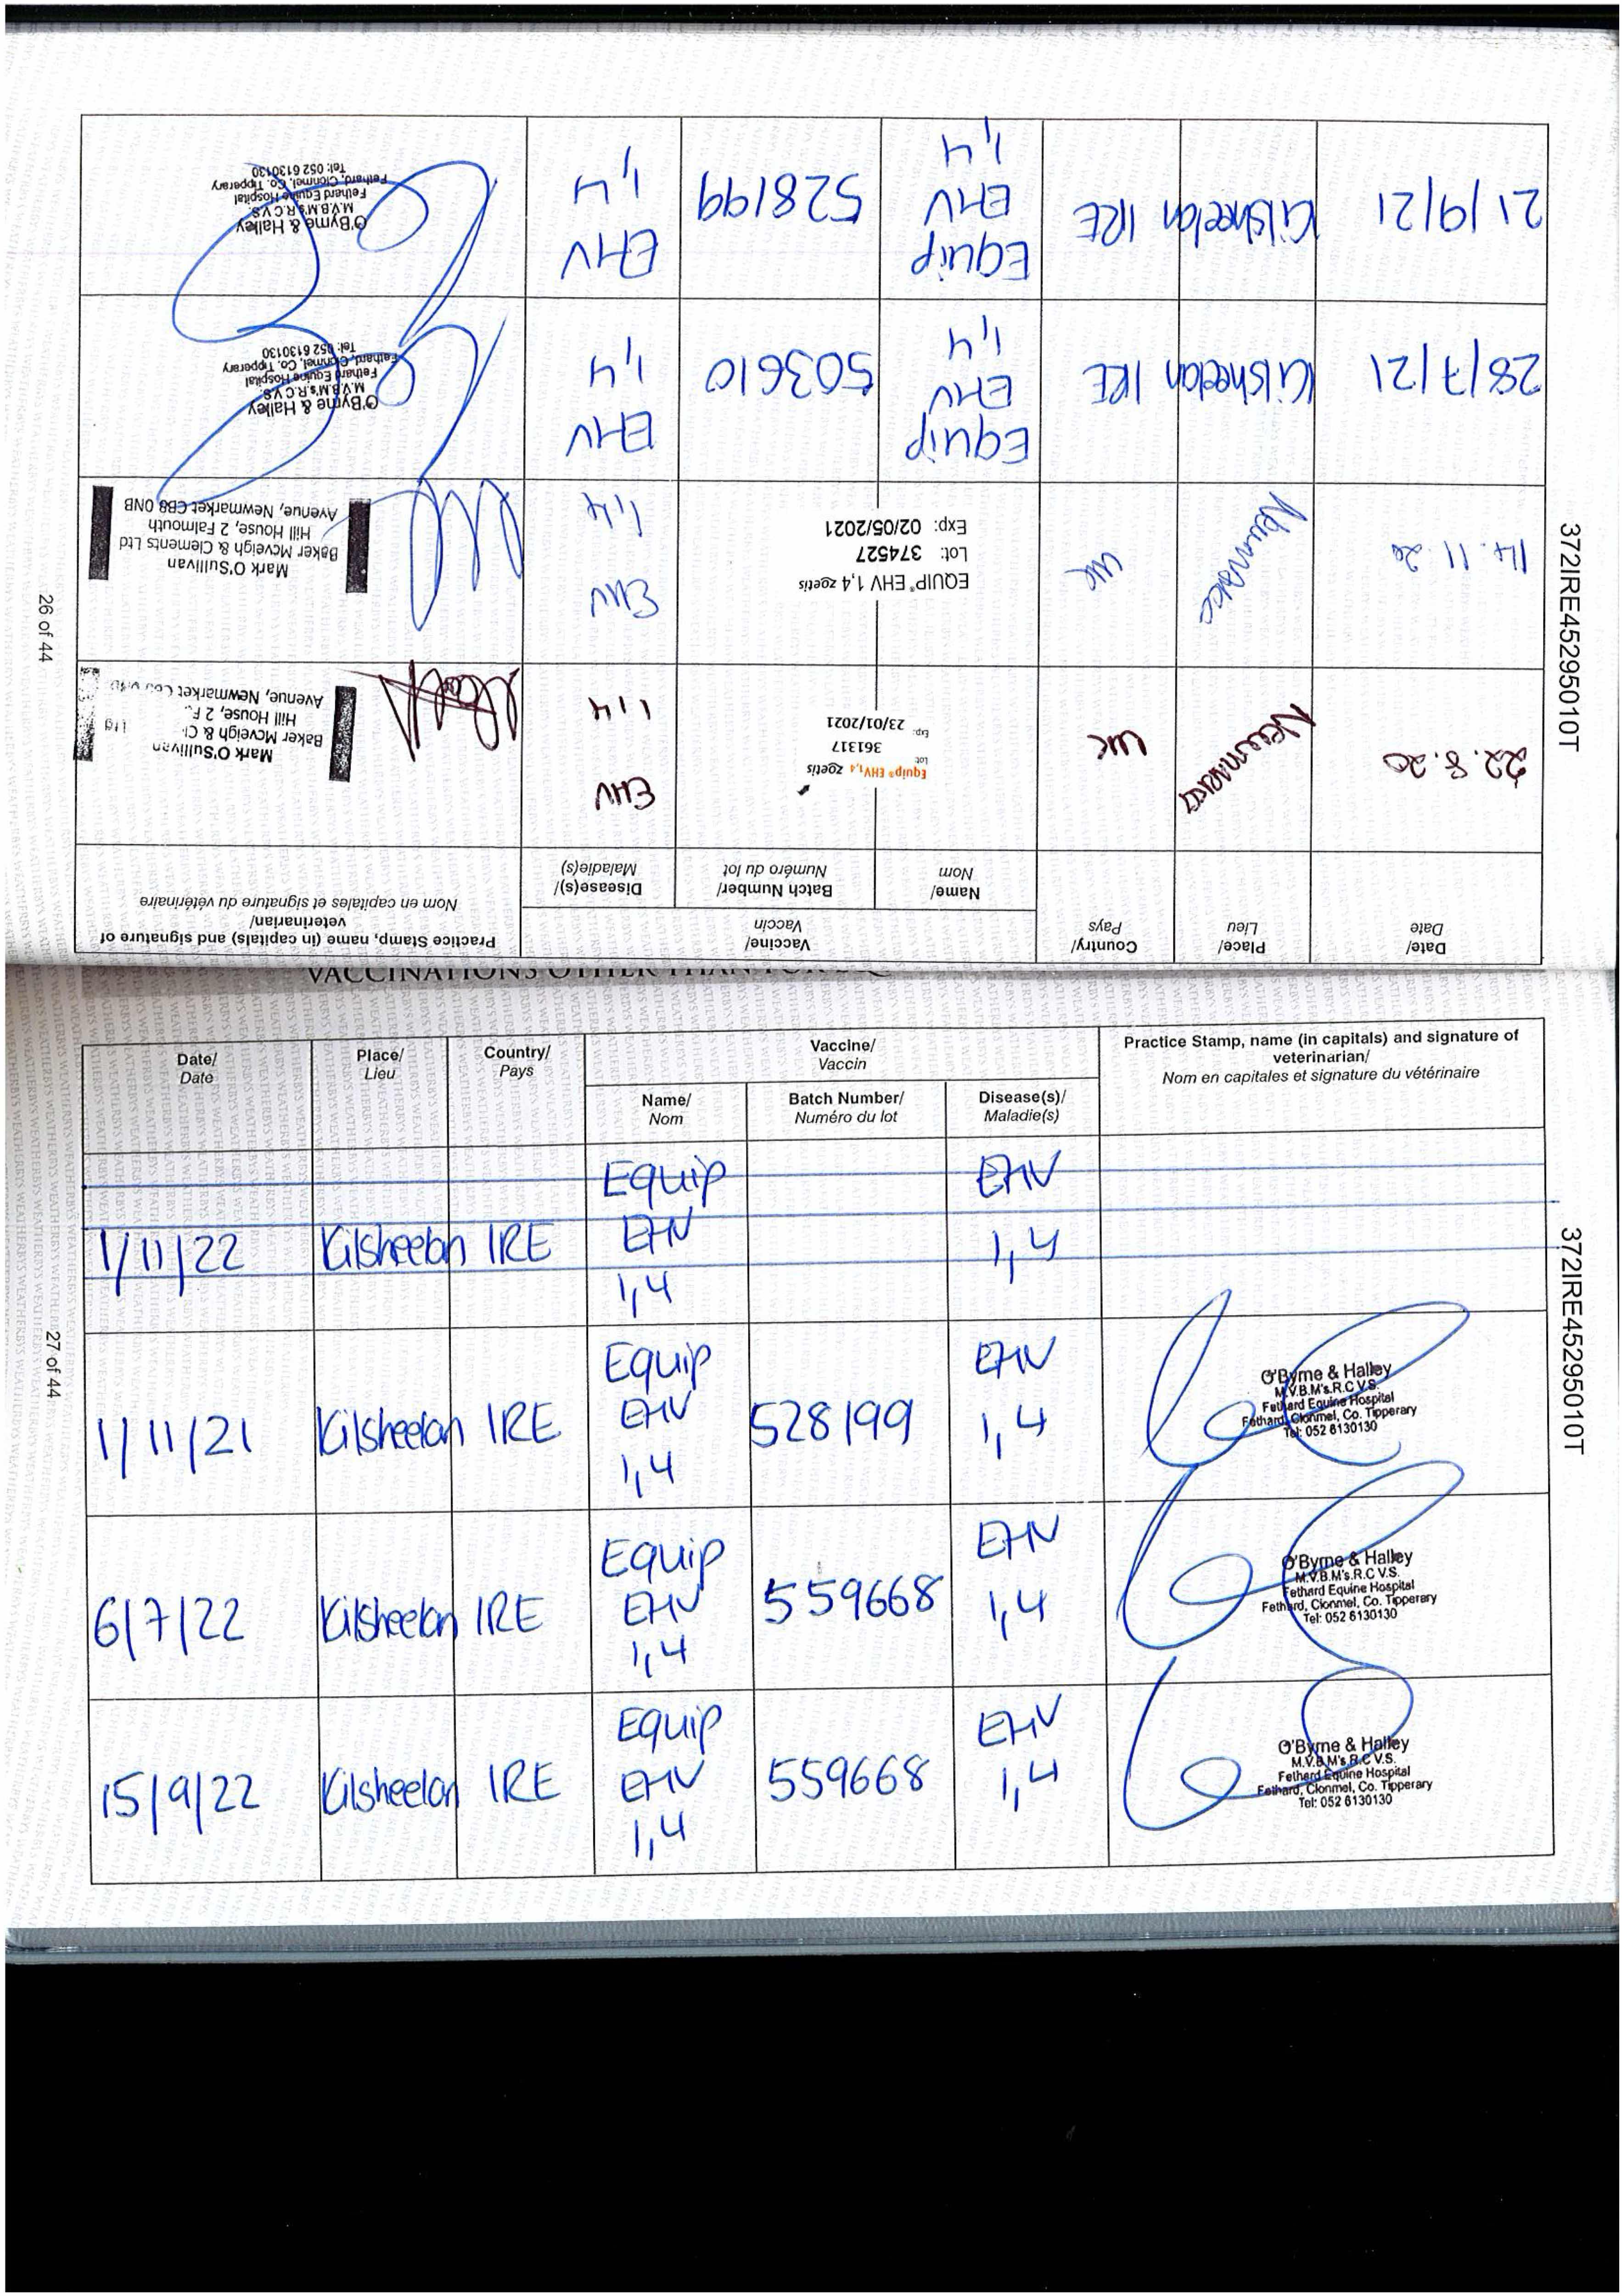 372IRE45295010T
Date/
Date
Place/
Lieu
Country/
Pays
Vaccine/
Vaccin
Name/
Nom
Batch Number/
Numéro du lot
Disease(s)/
Maladie(s)
Practice Stamp, name (in capitals) and signature of
veterinarian/
Nom en capitales et signature du vétérinaire
22.8.20
Newmarket
UK
Equip® EHV1,4 zoetis
Lot 361317
Exp: 23/01/2021
EHV
1,4
Mark O'Sullivan
Baker Mcveigh & Cl
Ltd
Hill House, 2 F
Avenue, Newmarket
14.11.20
Newmarket
UK
EQUIP® EHV 1,4 zoetis
Lot: 374527
Exp: 02/05/2021
EHV
1,4
Mark O'Sullivan
Baker Mcveigh & Clements Ltd
Hill House, 2 Falmouth
Avenue, Newmarket CB8 0NB
28/7/21
Kilsheelan
IRE
Equip
EHV
1,4
503610
EHV
1,4
O'Byrne & Halley
M.V.B.M's.R.C.V.S.
Fethard Equine Hospital
Fethard, Clonmel, Co. Tipperary
Tel: 052 6130130
21/9/21
Kilsheelan
IRE
Equip
EHV
1,4
528199
EHV
1,4
O'Byrne & Halley
M.V.B.M's.R.C.V.S.
Fethard Equine Hospital
Fethard, Clonmel, Co. Tipperary
Tel: 052 6130130
26 of 44
VACCINATIONS OTHER THAN FOR
Date/
Date
Place/
Lieu
Country/
Pays
Vaccine/
Vaccin
Name/
Nom
Batch Number/
Numéro du lot
Disease(s)/
Maladie(s)
Practice Stamp, name (in capitals) and signature of
veterinarian/
Nom en capitales et signature du vétérinaire
1/11/22
Kilsheelan
IRE
Equip
EHV
1,4
EHV
1,4
1/11/21
Kilsheelan
IRE
Equip
EHV
1,4
528199
EHV
1,4
O'Byrne & Halley
M.V.B.M's.R.C V.S.
Fethard Equine Hospital
Fethard, Clonmel, Co. Tipperary
Tel: 052 6130130
6/7/22
Kilsheelan
IRE
Equip
EHV
1,4
559668
EHV
1,4
O'Byrne & Halley
M.V.B.M's.R.C V.S.
Fethard Equine Hospital
Fethard, Clonmel, Co. Tipperary
Tel: 052 6130130
15/9/22
Kilsheelan
IRE
Equip
EHV
1,4
559668
EHV
1,4
O'Byrne & Halley
M.V.B.M's.R.C V.S.
Fethard Equine Hospital
Fethard, Clonmel, Co. Tipperary
Tel: 052 6130130
27 of 44
372IRE45295010T